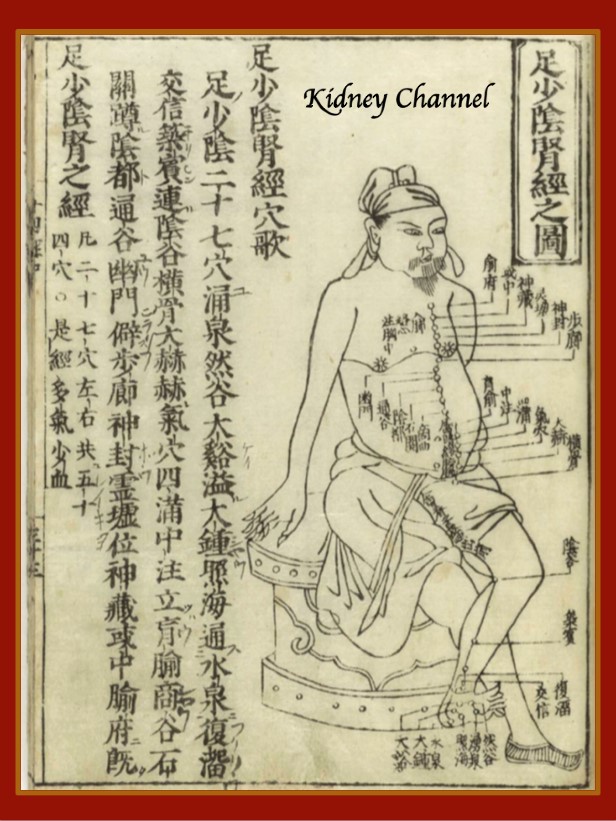 足少陰腎經之圖
Kidney Channel
足少陰腎經穴歌
足少陰二十七穴涌泉然谷大谿溢大鍾照海通水泉復溜
交信築賓連陰谷橫骨大赫赫氣穴四滿中注立肓腧商谷石
關蹲陰都通谷幽門僻步廊神封靈墟位神藏彧中腧府旣
足少陰腎之經
凡二十七穴左右共五十
四穴○是經多氣少血
步廊
神封
神藏
彧中
腧府
橫骨
大赫
氣穴
四滿
中注
肓腧
幽門
通谷
陰都
石關
陰谷
築賓
復溜
交信
然谷
湧泉
照海
水泉
大鍾
大谿